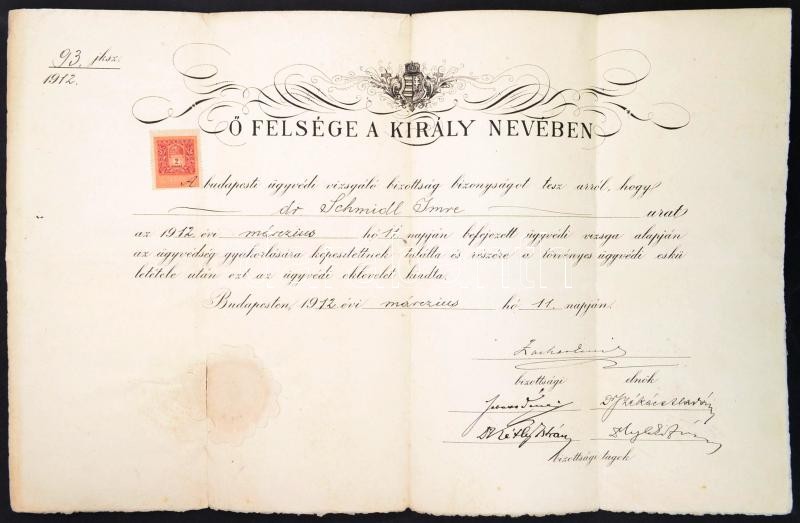 93. jksz.
1912.
Ő FELSÉGE A KIRÁLY NEVÉBEN
A budapesti ügyvédi vizsgáló bizottság bizonyságot tesz arról, hogy
dr Schmidl Imre urat
az 1912. évi márczius hó 11. napján befejezett ügyvédi vizsga alapján
az ügyvédség gyakorlására képesitettnek találta és részére a törvényes ügyvédi eskü
letétele után ezt az ügyvédi oklevelet kiadta.
Budapesten, 1912. évi márczius hó 11. napján.
bizottsági elnök
Dr Székács Aladár
Dr István
bizottsági tagok